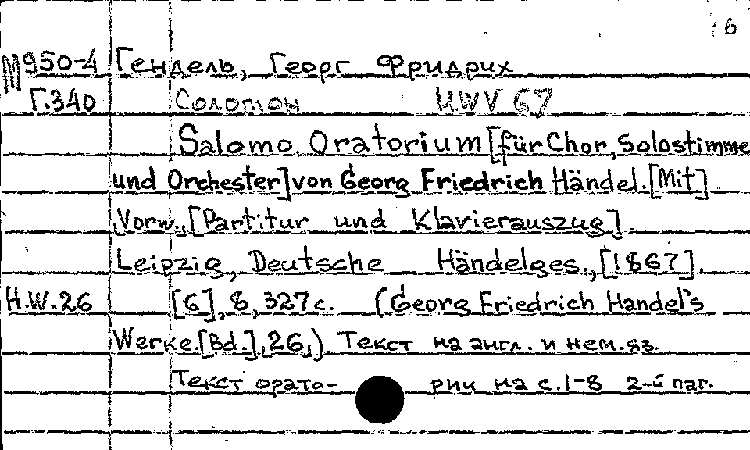 6
М950-4 Гендель, Георг Фридрих
Г.340 Соломон HWV 67
Salomo Oratorium [für Chor, Solostimme
und Orchester] von Georg Friedrich Händel. [Mit]
Vorw., [Partitur und Klavierauszug].
Leipzig, Deutsche Händelges., [1867].
H.W.26 [6], 8, 327 с. (Georg Friedrich Handel's
Werke. [Bd.], 26,) Текст на англ. и нем. яз.
Текст орато- рии на с. 1-8 2-й паг.